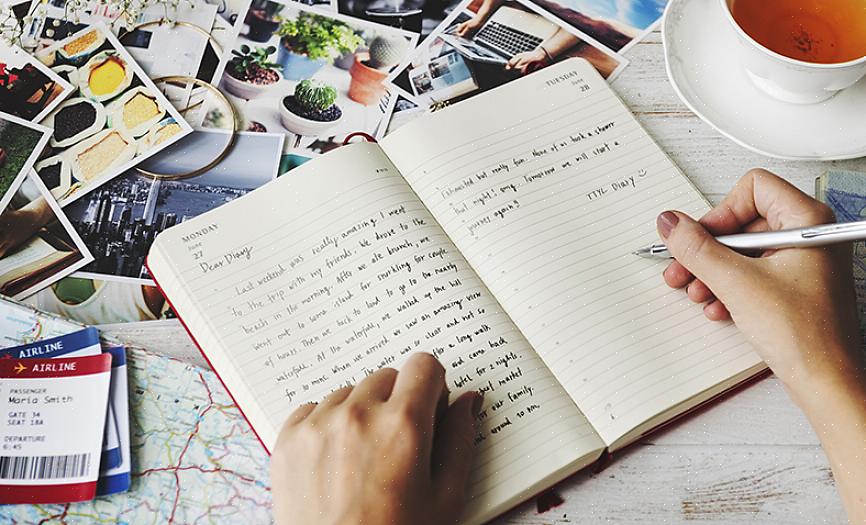 MONDAY
June
27
Dear Diary
Last weekend was really amazing I went
to the trip with my friends. We drove to the
beach in the morning. After we ate brunch, we
went out to some island for snorkling for couple
of hours. Then we back to land to go to the nearby
waterfall. At the waterfall, we walked up the hill
for 30 mins. When we arrived we saw an amazing view
The water was so clear and not so
after a long walk
and came back
hotel for 2 nights.
market
for our family.
around 10 am,
TUESDAY
June
28
Exhausted but really fun. None of us took a shower
that night! omg. Tomorrow we will start a
journey again!!
TTYL Diary
AIRLINE
AIRLINE
PASSENGER
Maria Smith
GATE 34
SEAT 18A
DEPARTURE
6:45